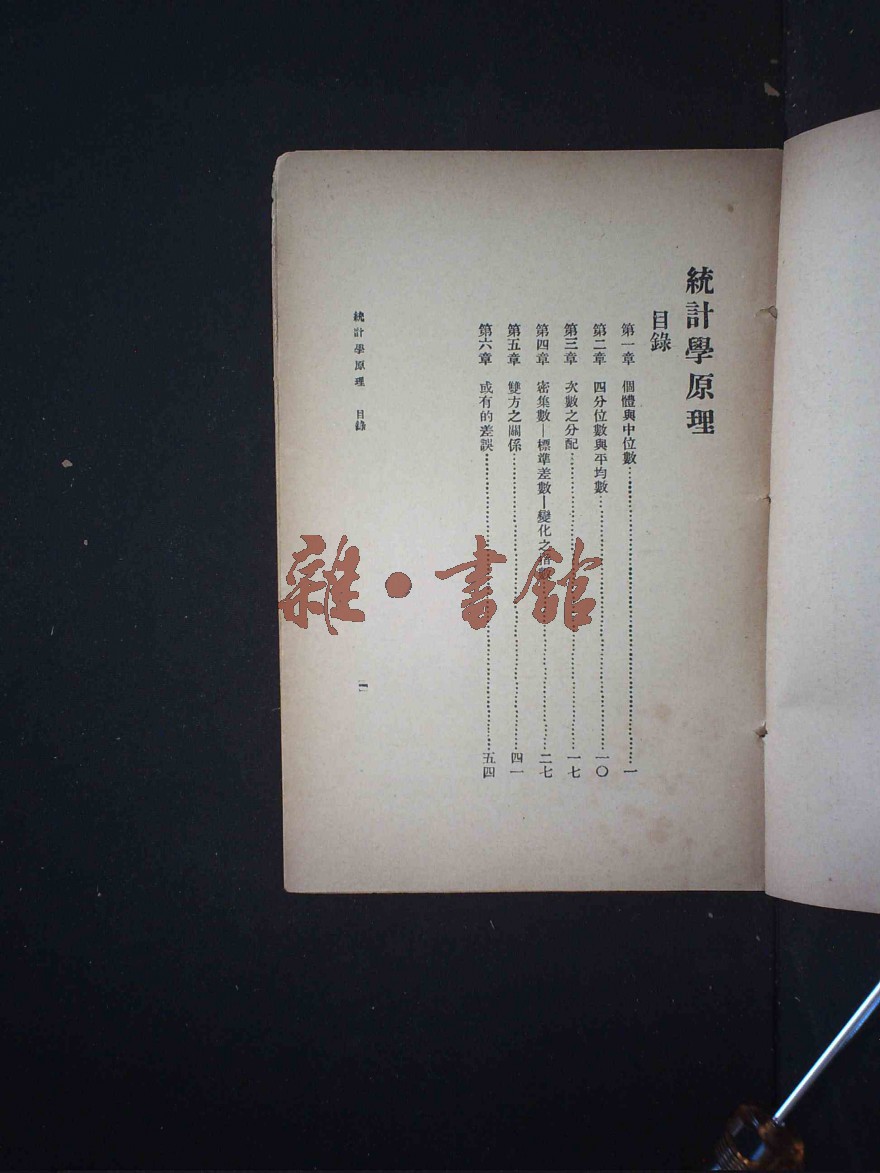 統計學原理
目錄
第一章 個體與中位數……一
第二章 四分位數與平均數……一〇
第三章 次數之分配……一七
第四章 密集數—標準差數—變化之……二七
第五章 雙方之關係……四一
第六章 或有的差誤……五四
統計學原理 目錄
雜·書館